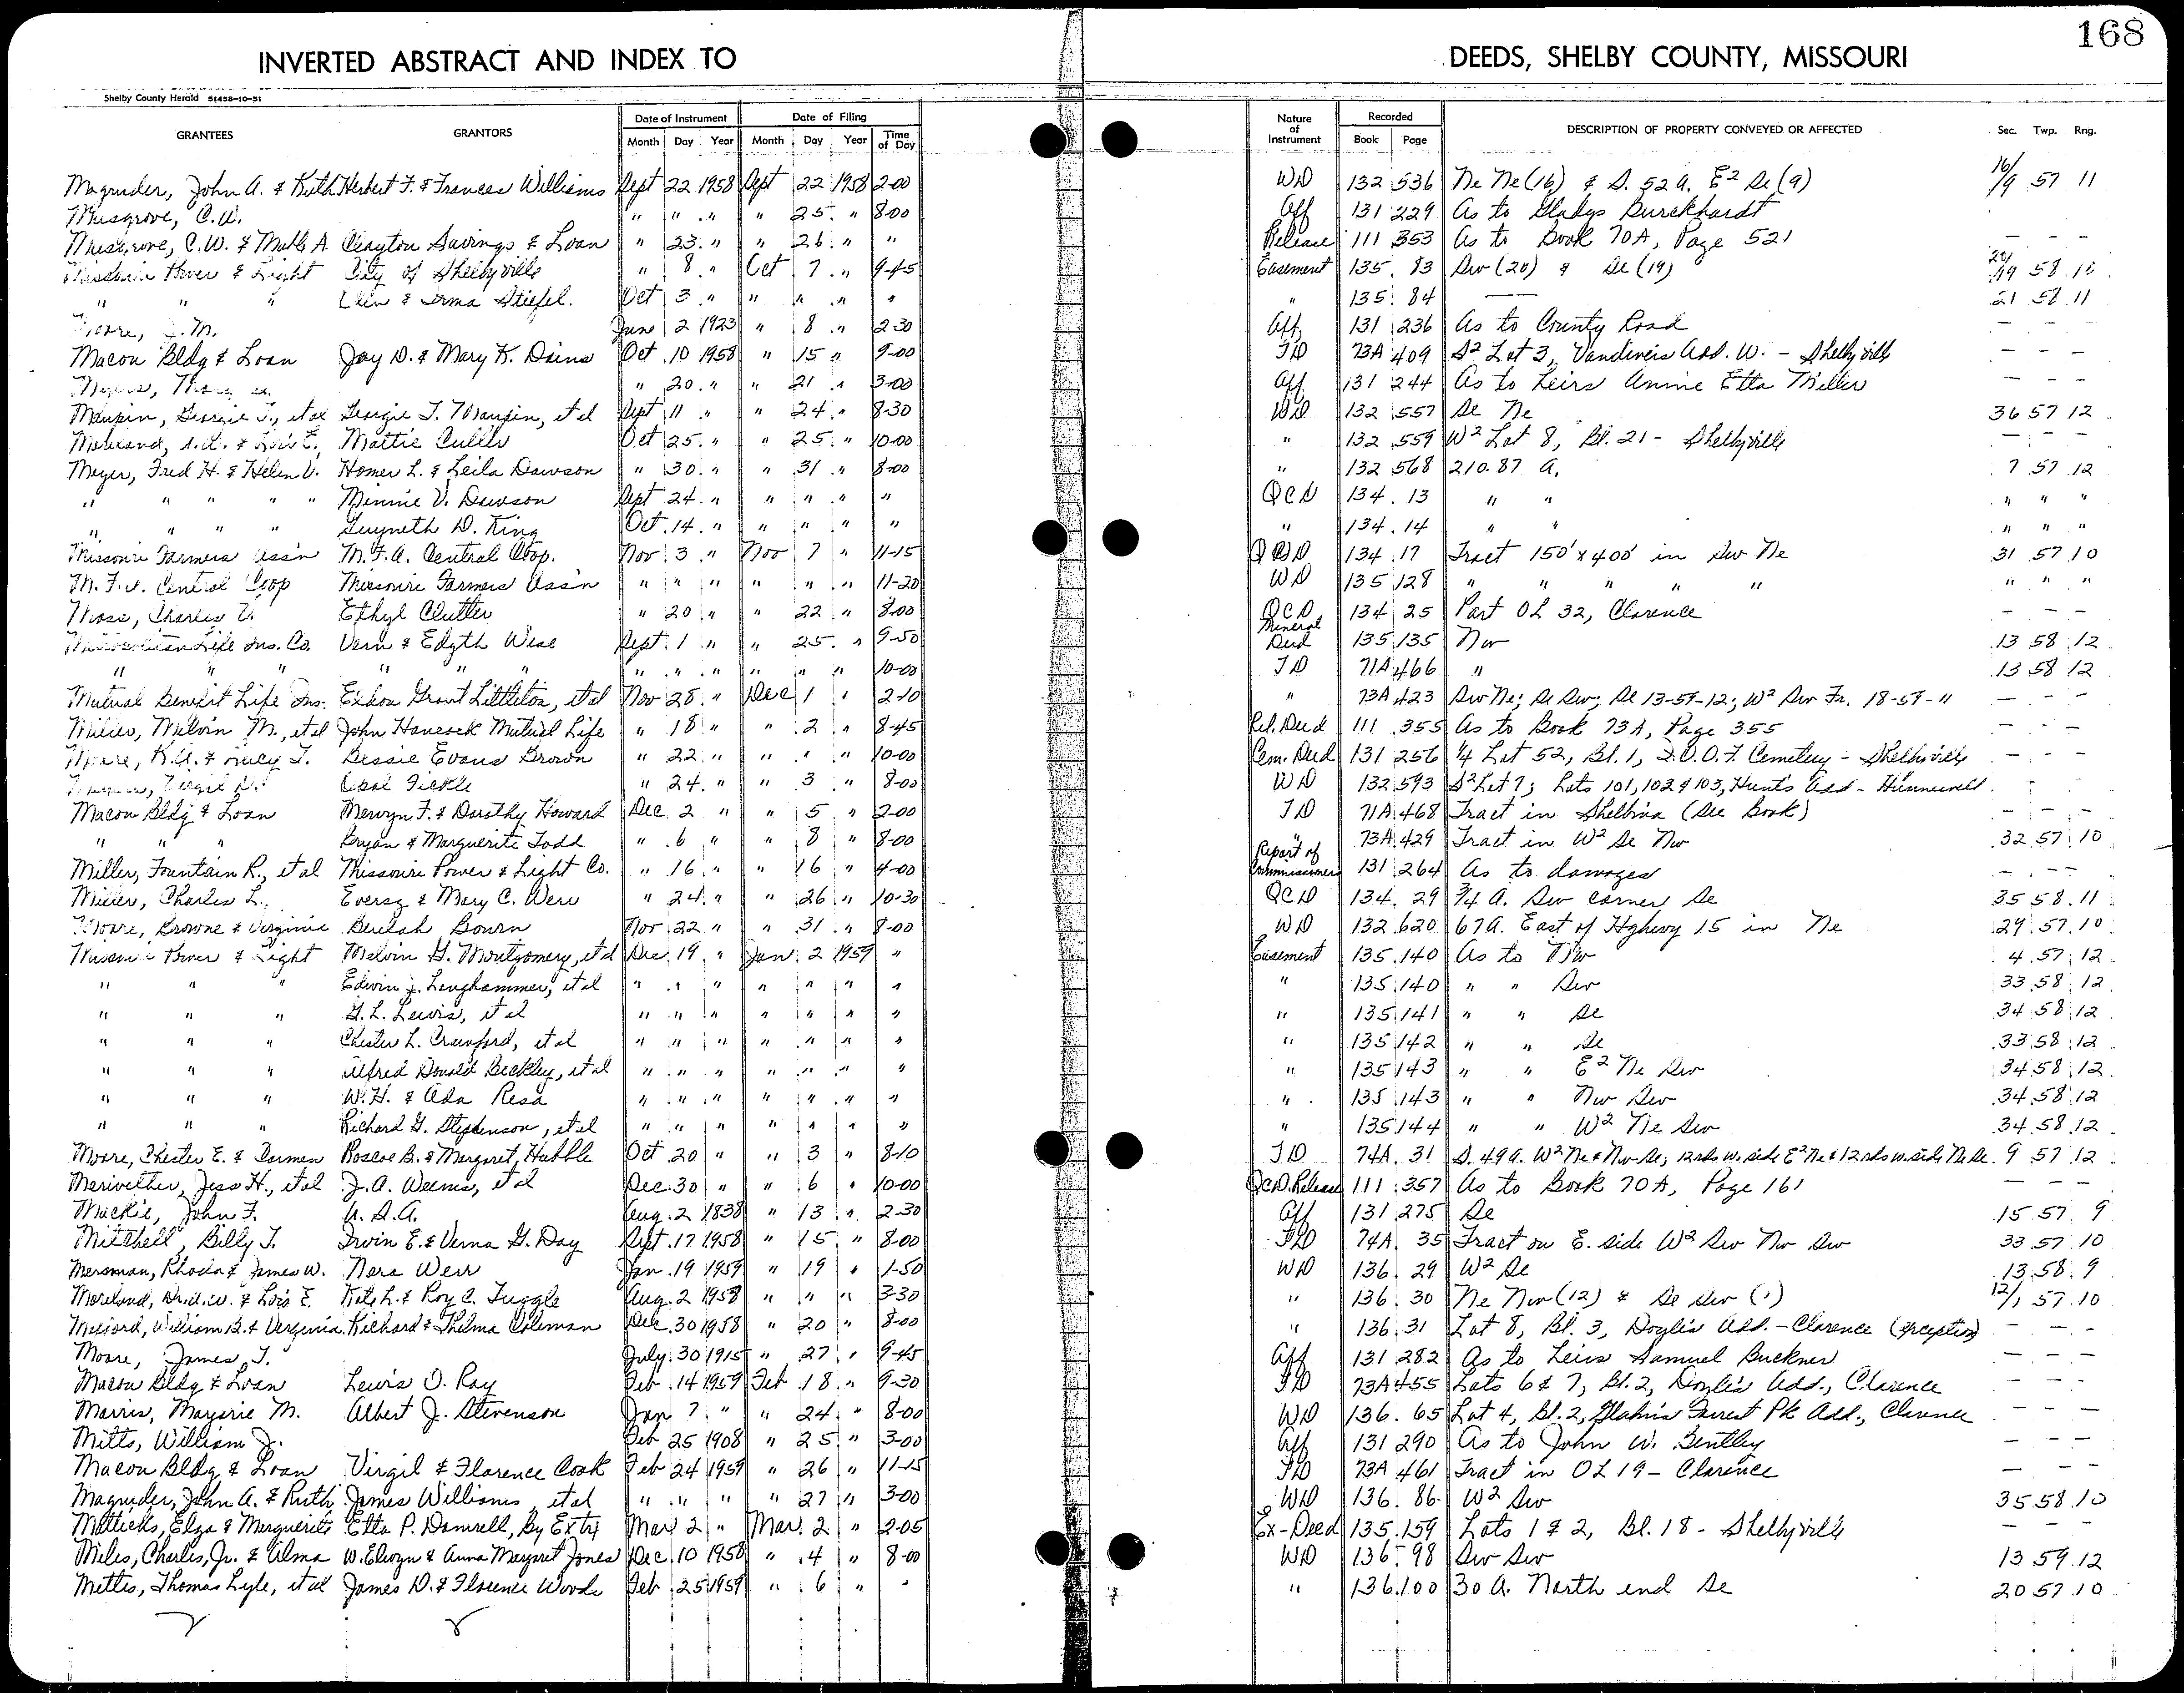 168
INVERTED ABSTRACT AND INDEX TO DEEDS, SHELBY COUNTY, MISSOURI
Shelby County Herald 51458-10-51
GRANTEES GRANTORS Date of Instrument Date of Filing Nature of Instrument Recorded DESCRIPTION OF PROPERTY CONVEYED OR AFFECTED Sec. Twp. Rng.
Month Day Year Month Day Year Time of Day Book Page
Magruder, John A. & Ruth Herbert F. & Frances Williams Sept 22 1958 Sept 22 1958 2-00 WD 132 536 Ne Ne (16) & S. 52 A. E2 Se (9) 16/9 57 11
Musgrove, C.W. " " " " 25 " 8-00 Aff 131 229 As to Gladys Burckhardt
Musgrove, C.W. & Mable A Clayton Savings & Loan " 23 " " 26 " " Release 111 353 As to Book 70A, Page 521 - - -
Missouri Power & Light City of Shelbyville " 8 " Oct 7 " 9-45 Easement 135 83 Sw (20) & Se (19) 20/19 58 10
" " " & Irma Stiefel Oct 3 " " " " " " 135 84 — 21 58 11
Moore, J.M. June 2 1923 " 8 " 2-30 Aff. 131 236 As to County Road - - -
Macon Bldg & Loan Jay D. & Mary K. Dains Oct 10 1958 " 15 " 9-00 TD 73A 409 S2 Lot 3, Vandiver's Add. W. - Shelbyville - - -
" 20 " " 21 " 3-00 Aff 131 244 As to Heirs Annie Etta Miller - - -
Maupin, Georgie T., et al Georgie T. Maupin, et al Sept 11 " " 24 " 8-30 WD 132 557 Se Ne 36 57 12
Moreland, & Lois E. Mattie Culler Oct 25 " " 25 " 10-00 " 132 559 W2 Lot 8, Bl. 21 - Shelbyville - - -
Meyer, Fred H. & Helen V. Homer L. & Leila Dawson " 30 " " 31 " 8-00 " 132 568 210.87 A. 7 57 12
" " " " " Minnie V. Dawson Sept 24 " " " " " QCD 134 13 " " " " "
" " " " Gwyneth D. King Oct 14 " " " " " " 134 14 " " " " "
Missouri Farmers Ass'n M.F.A. Central Coop. Nov 3 " Nov 7 " 11-15 QCD 134 17 Tract 150' x 400' in Sw Ne 31 57 10
M.F.A. Central Coop Missouri Farmers Ass'n " " " " " " 11-20 WD 135 128 " " " " " " " "
Moss, Charles Ethyl Clutter " 20 " " 22 " 8-00 QCD 134 25 Part OL 32, Clarence - - -
Life Ins. Co. Vern & Edyth Wise Sept 1 " " 25 " 9-50 Mineral Deed 135 135 Nw 13 58 12
" " " " " " " " " " " " 10-00 TD 71A 466 " 13 58 12
Mutual Benefit Life Ins. Eldon Grant Littleton, et al Nov 28 " Dec 1 " 2-10 " 73A 423 Sw Ne; Se Sw; Se 13-57-12; W2 Sw Fr. 18-57-11 - - -
Miller, Melvin M., et al John Hancock Mutual Life " 18 " " 2 " 8-45 Rel. Deed 111 355 As to Book 73A, Page 355 - - -
Moore, R.A. & Lucy T. Bessie Evans Brown " 22 " " " " 10-00 Cem. Deed 131 256 1/4 Lot 52, Bl. 1, I.O.O.F. Cemetery - Shelbyville - - -
Virgil Opal Fickle " 24 " " 3 " 8-00 WD 132 593 S2 Lot 7; Lots 101, 102 & 103, Hunt's Add - Hunnewell - - -
Macon Bldg & Loan Merwyn F. & Dorothy Howard Dec 2 " " 5 " 2-00 TD 71A 468 Tract in Shelbina (See Book) - - -
" " " Bryan & Marguerite Todd " 6 " " 8 " 8-00 " 73A 429 Tract in W2 Se Nw 32 57 10
Miller, Fountain R., et al Missouri Power & Light Co. " 16 " " 16 " 4-00 Report of Commissioners 131 264 As to damages - - -
Miller, Charles L., Eversy & Mary C. Werr " 24 " " 26 " 10-30 QCD 134 29 3/4 A. Sw corner Se 35 58 11
Moore, Browne & Virginia Beulah Bourn Nov 22 " " 31 " 8-00 WD 132 620 67 A. East of Highwy 15 in Ne 29 57 10
Missouri Power & Light Melvin G. Montgomery, et al Dec 19 " Jan 2 1959 " Easement 135 140 As to Nw 4 57 12
" " " Edwin J. Langhammer, et al " " " " " " " " 135 140 " " Sw 33 58 12
" " " G.L. Lewis, et al " " " " " " " " 135 141 " " Se 34 58 12
" " " Chester L. Crawford, et al " " " " " " " " 135 142 " " Se 33 58 12
" " " Alfred Donald Beckley, et al " " " " " " " " 135 143 " " E2 Ne Sw 34 58 12
" " " W.H. & Ada Resa " " " " " " " " 135 143 " " Nw Sw 34 58 12
" " " Richard G. Stephenson, et al " " " " " " " " 135 144 " " W2 Ne Sw 34 58 12
Moore, Chester E. & Carmen Roscoe B. & Margaret Hubble Oct 20 " " 3 " 8-10 TD 74A 31 S. 49 A. W2 Ne & Nw Se; 12 rds W. side E2 Ne & 12 rds w. side Ne Se 9 57 12
Meriwether, Jess H., et al J.A. Weems, et al Dec 30 " " 6 " 10-00 QCD. Release 111 357 As to Book 70A, Page 161 - - -
Mackie, John F. U.S.A. Aug 2 1838 " 13 " 2-30 Aff 131 275 Se 15 57 9
Mitchell, Billy T. Irwin E. & Verna G. Day Sept 17 1958 " 15 " 8-00 TD 74A 35 Tract on E. side W2 Sw Nw Sw 33 57 10
Mersman, Rhoda & James W. Nora Werr Jan 19 1959 " 19 " 1-50 WD 136 29 W2 Se 13 58 9
Moreland, Dr. A.W. & Lois E. Kate L. & Roy C. Tuggle Aug. 2 1958 " " " 3-30 " 136 30 Ne Nw (12) & Se Sw (1) 12/1 57 10
William B. & Virginia Richard & Thelma Coleman Dec 30 1958 " 20 " 8-00 " 136 31 Lot 8, Bl. 3, Doyle's Add. - Clarence (exception) - - -
Moore, James T. July 30 1915 " 27 " 9-45 Aff 131 282 As to Heirs Samuel Buckner - - -
Macon Bldg & Loan Lewis O. Ray Feb 14 1959 Feb 18 " 9-30 TD 73A 455 Lots 6 & 7, Bl. 2, Doyle's Add., Clarence - - -
Morris, Marjorie M. Albert J. Stevenson Jan 7 " " 24 " 8-00 WD 136 65 Lot 4, Bl. 2, Forrest Pk Add., Clarence - - -
Mitts, William J. Feb 25 1908 " 25 " 3-00 Aff 131 290 As to John W. Bentley - - -
Macon Bldg & Loan Virgil & Florence Cook Feb 24 1959 " 26 " 11-15 TD 73A 461 Tract in OL 19 - Clarence - - -
Magruder, John A. & Ruth James Williams, et al " " " " 27 " 3-00 WD 136 86 W2 Sw 35 58 10
Matticks, Elza & Marguerite Etta P. Damrell, By Extx Mar 2 " Mar 2 " 2-05 Ex-Deed 135 159 Lots 1 & 2, Bl. 18 - Shelbyville - - -
Miles, Charles, Jr. & Alma W. Elwyn & Anna Margaret Jones Dec 10 1958 " 4 " 8-00 WD 136 98 Sw Sw 13 59 12
Mettes, Thomas Lyle, et al James D. & Florence Woods Feb 25 1959 " 6 " " " 136 100 30 A. North end Se 20 57 10